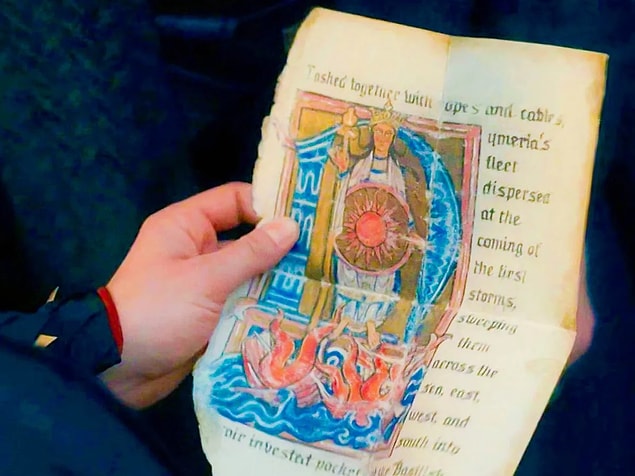 Lashed together with ropes and cables,
ymeria's
fleet
dispersed
at the
coming of
the first
storms,
sweeping
them
across the
sea, east,
west, and
south into
invested pocket